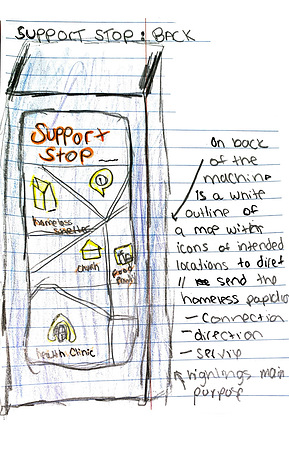 SUPPORT STOP: BACK
Support
Stop
homeless
shelter
church
food
Health Clinic
On back
of the
machine
is a white
outline of
a map with
icons of intended
locations to
// send the
homeless
- Connection
- direction
- servive
highlings main
purpose